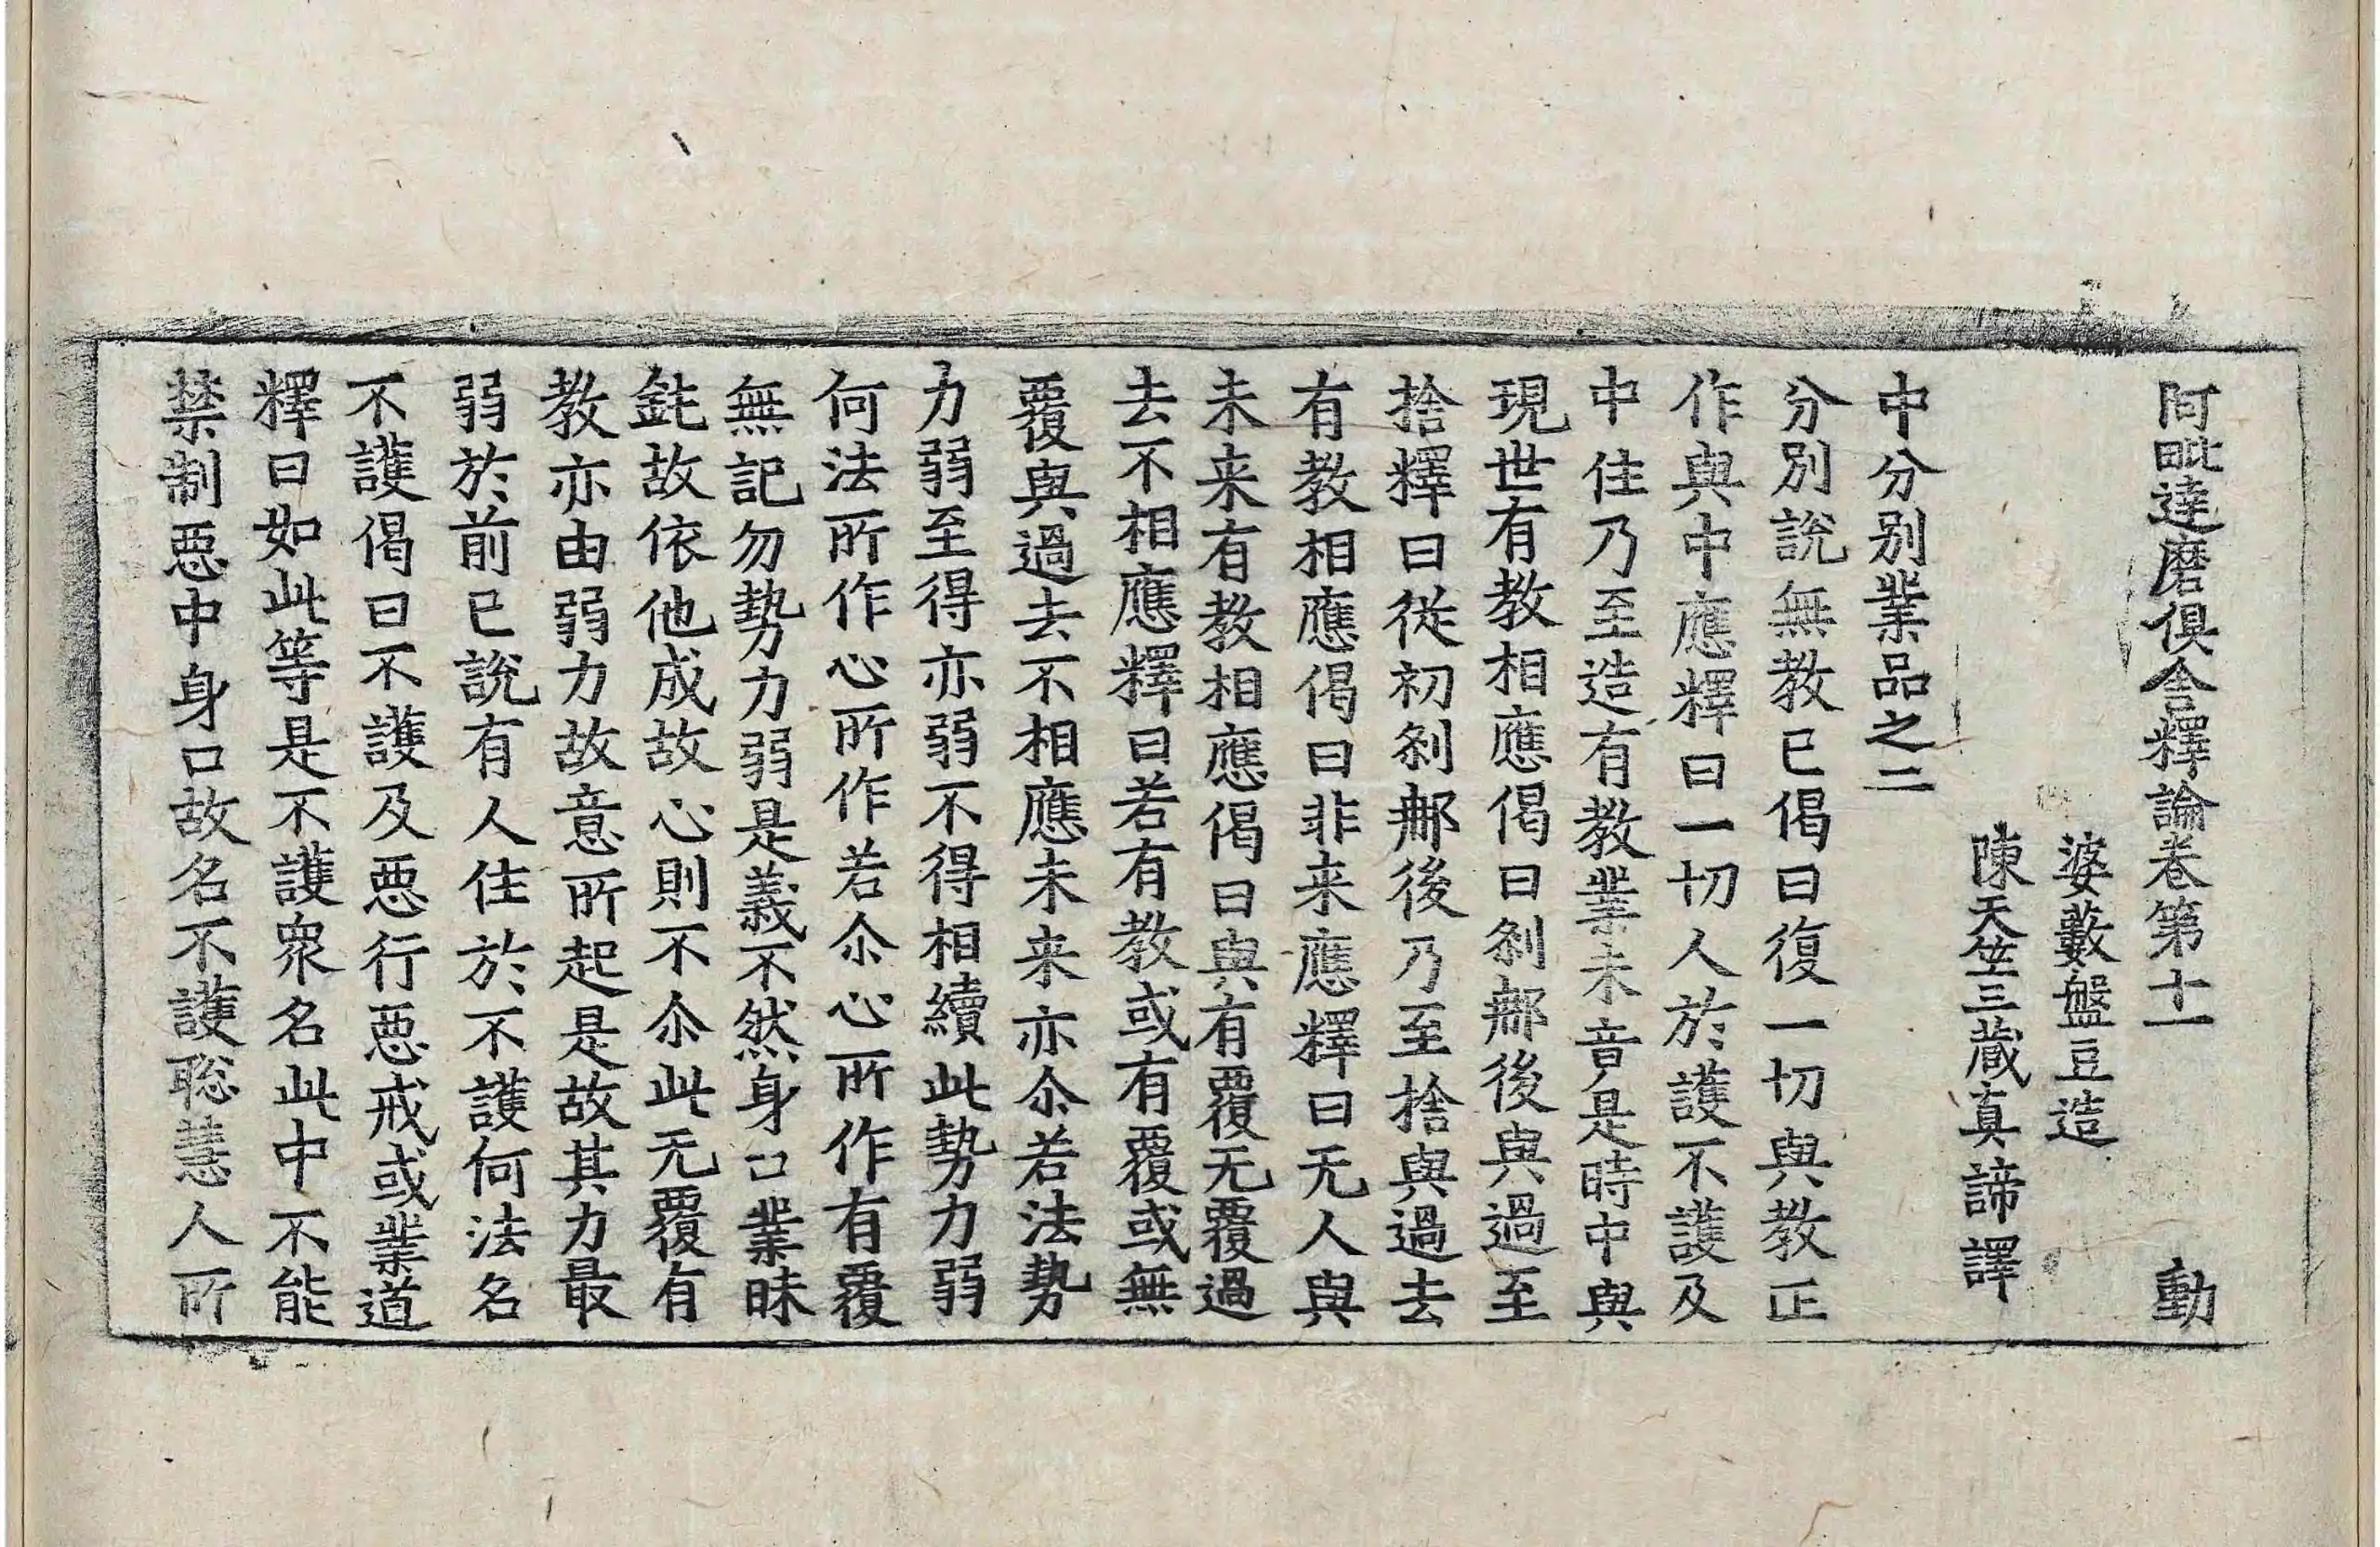 阿毗達磨俱舍釋論卷第十一 動
婆藪盤豆造
陳天竺三藏真諦譯
中分別業品之二
分別說無教已偈曰復一切與教正
作與中應釋曰一切人於護不護及
中住乃至造有教業未音是時中與
現世有教相應偈曰剎那後與過至
捨釋曰從初剎那後乃至捨與過去
有教相應偈曰非来應釋曰无人與
未来有教相應偈曰與有覆无覆過
去不相應釋曰若有教或有覆或無
覆與過去不相應未来亦尒若法勢
力弱至得亦弱不得相續此勢力弱
何法所作心所作若尒心所作有覆
無記勿勢力弱是義不然身口業昧
鈍故依他成故心則不尒此无覆有
教亦由弱力故意所起是故其力最
弱於前已說有人住於不護何法名
不護偈曰不護及惡行惡戒或業道
釋曰如此等是不護眾名此中不能
禁制惡中身口故名不護聡慧人所